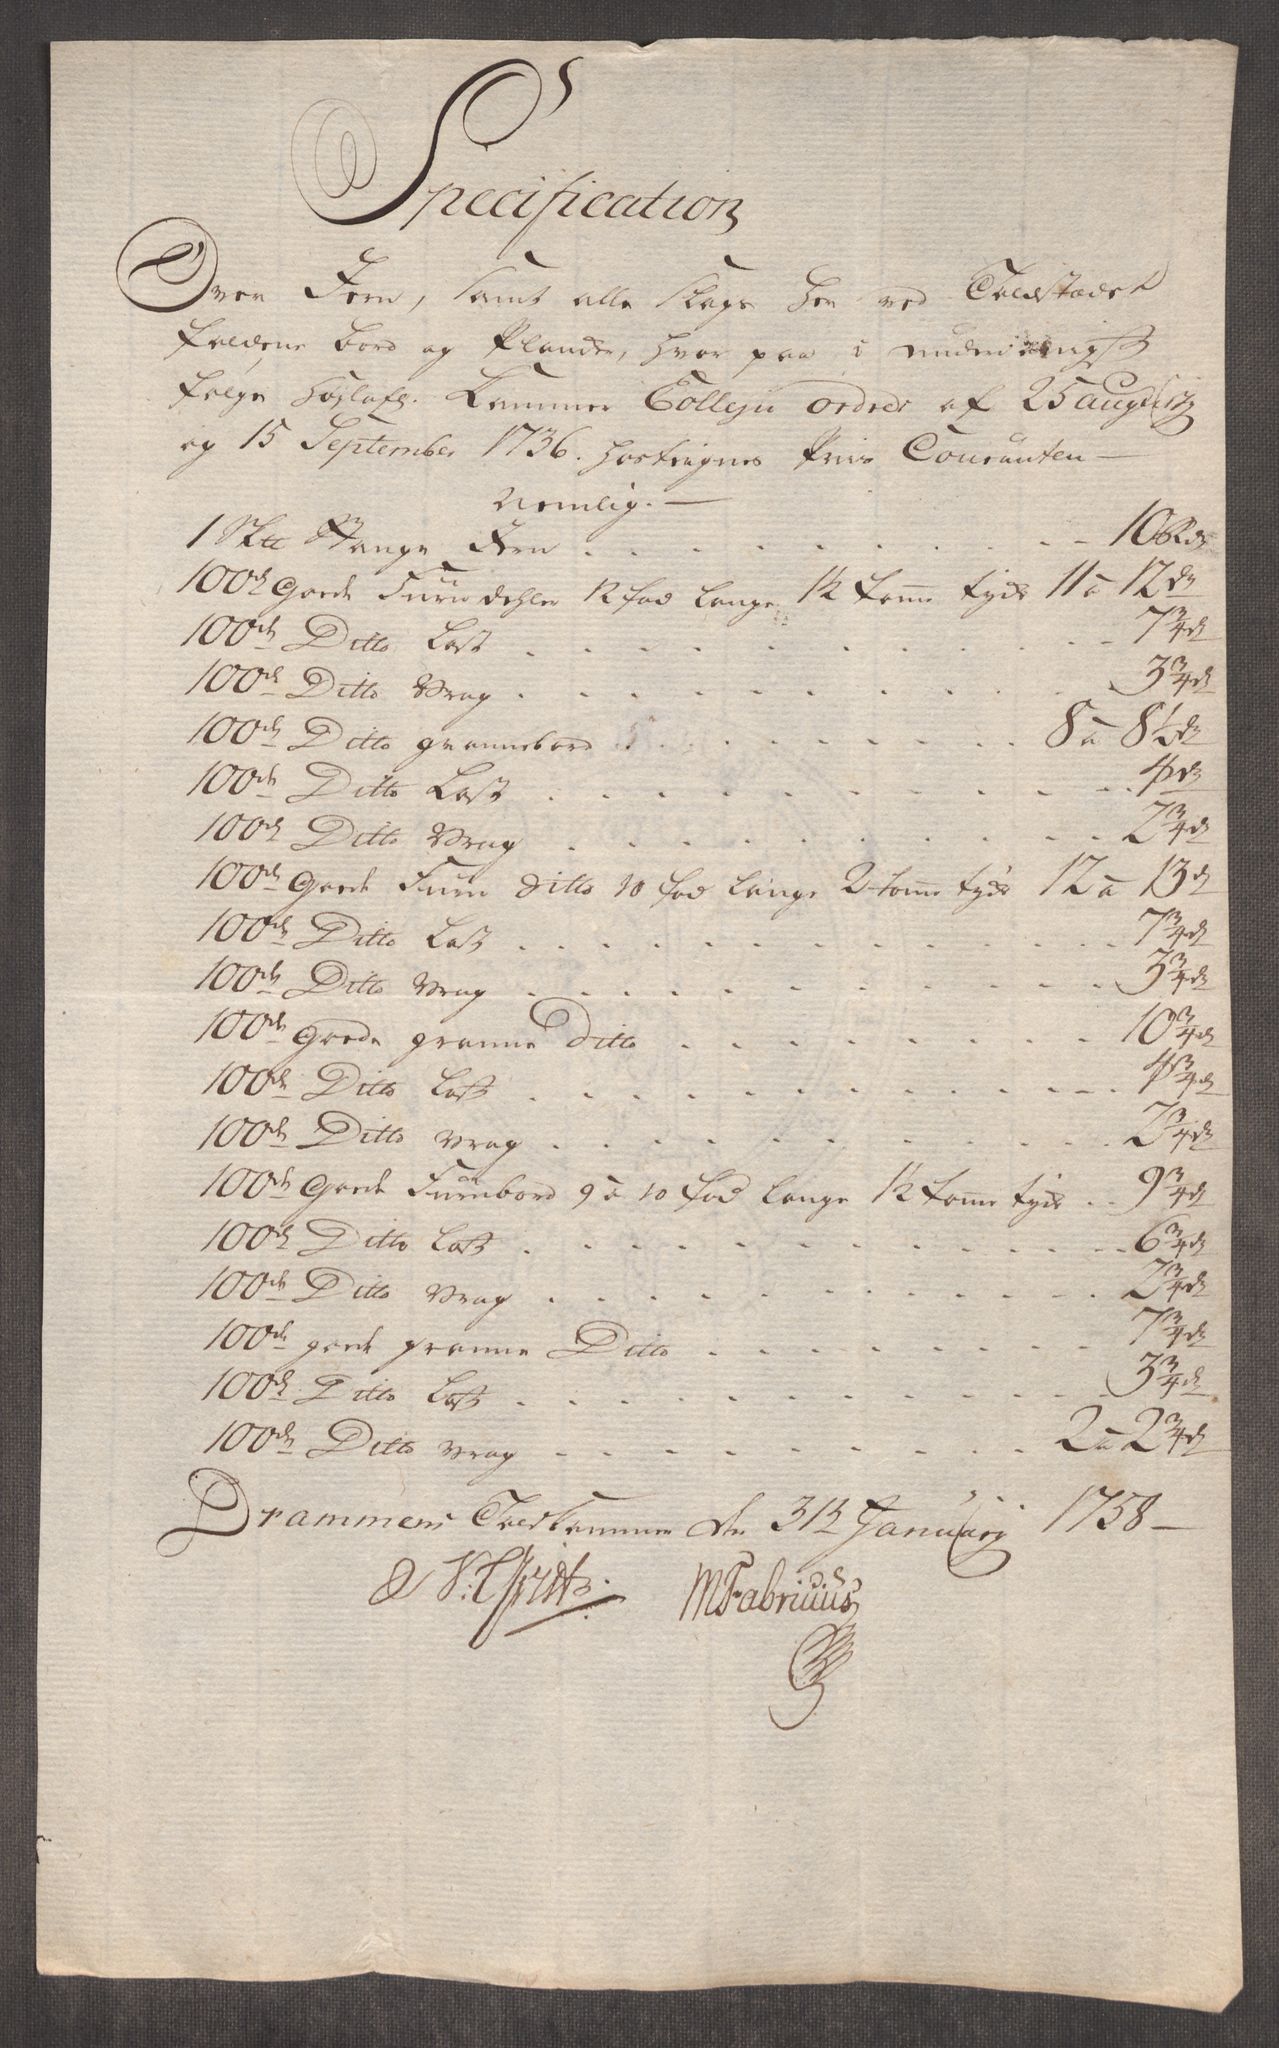 Specification
Over Jern, samt alle slags her ved Toldstædet
faldene bord og Plancker, hvor paa i underdanigst
følge Høylofl. Cammer Collegii ordre af 25 augusti
og 15 September 1736. hostegnes Priis Couranten
Nemlig.
1 Sk℔ Stange Jern . . . . . . . . . 10 Rdr
100de goede Furu dehler 12 fod lange 1½ tomme tyck 11 a 12 dr
100de Ditto Last . . . . . . . . . 7¾ dr
100de Ditto Vrag . . . . . . . . . 3¾ dr
100de Ditto grannebord . . . . . . . . 8 a 8½ dr
100de Ditto Last . . . . . . . . . 4 dr
100de Ditto Vrag . . . . . . . . . 2¾ dr
100de goede Furu ditto 10 fod lange 2 tomme tyck 12 a 13 dr
100de Ditto Last . . . . . . . . . 7¾ dr
100de Ditto Vrag . . . . . . . . . 3¾ dr
100de goede granne Ditto . . . . . . . . 10¾ dr
100de Ditto Last . . . . . . . . . 4¾ dr
100de Ditto Vrag . . . . . . . . . 2¾ dr
100de goede Furubord 9 a 10 fod lange 1½ tomme tyck . . 9¾ dr
100de Ditto Last . . . . . . . . . 6¾ dr
100de Ditto Vrag . . . . . . . . . 2¾ dr
100de goede granne Ditto . . . . . . . . 7¾ dr
100de Ditto Last . . . . . . . . . 3¾ dr
100de Ditto Vrag . . . . . . . . 2 a 2¾ dr
Drammens Toldkammer den 31te January 1758
MFabritius